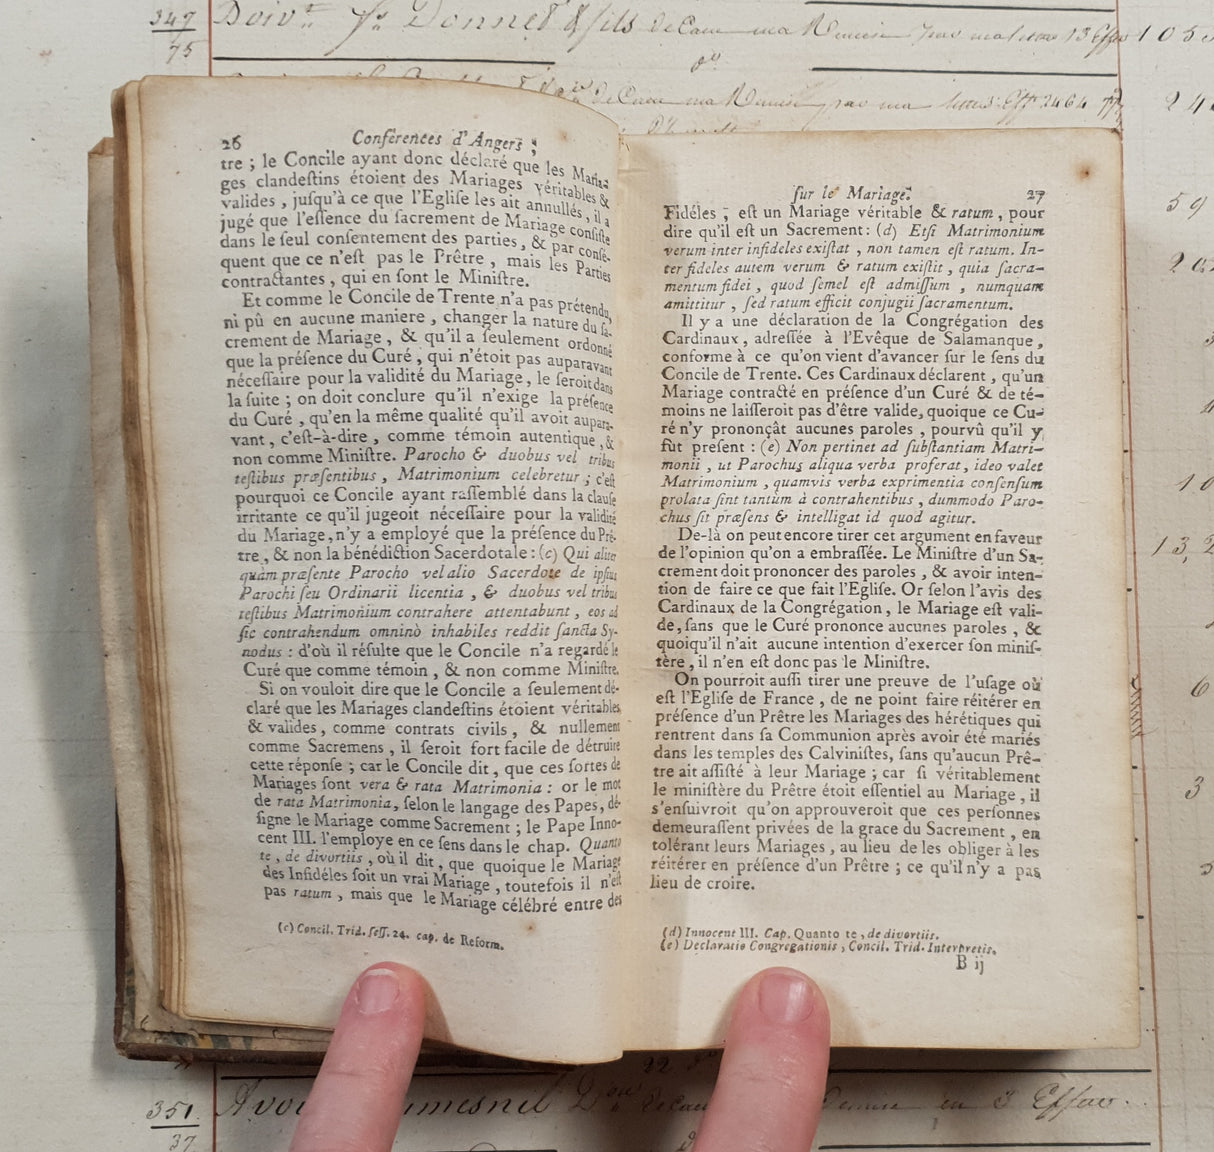 347
75
26
Conférences d'Angers ;
tre ; le Concile ayant donc déclaré que les Maria-
ges clandeſtins étoient des Mariages véritables &
valides , juſqu'à ce que l'Egliſe les ait annullés , il a
jugé que l'eſſence du ſacrement de Mariage conſiſte
dans le ſeul conſentement des parties , & par conſé-
quent que ce n'eſt pas le Prêtre , mais les Parties
contractantes , qui en ſont le Miniſtre.
Et comme le Concile de Trente n'a pas prétendu,
ni pû en aucune maniere , changer la nature du ſa-
crement de Mariage , & qu'il a ſeulement ordonné
que la préſence du Curé , qui n'étoit pas auparavant
néceſſaire pour la validité du Mariage , le ſeroit dans
la ſuite ; on doit conclure qu'il n'exige la préſence
du Curé , qu'en la même qualité qu'il avoit aupara-
vant , c'eſt-à-dire , comme témoin autentique , &
non comme Miniſtre. Parocho & duobus vel tribus
teſtibus præſentibus , Matrimonium celebretur ; c'eſt
pourquoi ce Concile ayant raſſemblé dans la clauſe
irritante ce qu'il jugeoit néceſſaire pour la validité
du Mariage, n'y a employé que la préſence du Prê-
tre , & non la bénédiction Sacerdotale : (c) Qui aliter
quàm præſente Parocho vel alio Sacerdote de ipſius
Parochi ſeu Ordinarii licentia , & duobus vel tribus
teſtibus Matrimonium contrahere attentabunt , eos ad
ſic contrahendum omninò inhabiles reddit ſancta Sy-
nodus : d'où il réſulte que le Concile n'a regardé le
Curé que comme témoin , & non comme Miniſtre.
Si on vouloit dire que le Concile a ſeulement dé-
claré que les Mariages clandeſtins étoient véritables,
& valides , comme contrats civils , & nullement
comme Sacremens , il ſeroit fort facile de détruire
cette réponſe ; car le Concile dit , que ces ſortes de
Mariages ſont vera & rata Matrimonia : or le mot
de rata Matrimonia, ſelon le langage des Papes, dé-
ſigne le Mariage comme Sacrement ; le Pape Inno-
cent III. l'employe en ce ſens dans le chap. Quanto
te , de divortiis , où il dit , que quoique le Mariage
des Infidéles ſoit un vrai Mariage , toutefois il n'eſt
pas ratum , mais que le Mariage célébré entre des
(c) Concil. Trid. ſeſſ. 24. cap. de Reform.
ſur le Mariage.
27
Fidéles ; eſt un Mariage véritable & ratum , pour
dire qu'il eſt un Sacrement : (d) Etſi Matrimonium
verum inter infideles exiſtat , non tamen eſt ratum. In-
ter fideles autem verum & ratum exiſtit , quia ſacra-
mentum fidei , quod ſemel eſt admiſſum , numquam
amittitur , ſed ratum efficit conjugii ſacramentum.
Il y a une déclaration de la Congrégation des
Cardinaux , adreſſée à l'Evêque de Salamanque ,
conforme à ce qu'on vient d'avancer ſur le ſens du
Concile de Trente. Ces Cardinaux déclarent , qu'un
Mariage contracté en préſence d'un Curé & de té-
moins ne laiſſeroit pas d'être valide, quoique ce Cu-
ré n'y prononçât aucunes paroles , pourvû qu'il y
fût préſent : (e) Non pertinet ad ſubſtantiam Matri-
monii , ut Parochus aliqua verba proferat, ideo valet
Matrimonium , quamvis verba exprimentia conſenſum
prolata ſint tantùm à contrahentibus , dummodo Paro-
chus ſit præſens & intelligat id quod agitur.
De-là on peut encore tirer cet argument en faveur
de l'opinion qu'on a embraſſée. Le Miniſtre d'un Sa-
crement doit prononcer des paroles , & avoir inten-
tion de faire ce que fait l'Egliſe. Or ſelon l'avis des
Cardinaux de la Congrégation , le Mariage eſt vali-
de, ſans que le Curé prononce aucunes paroles , &
quoiqu'il n'ait aucune intention d'exercer ſon miniſ-
tère , il n'en eſt donc pas le Miniſtre.
On pourroit auſſi tirer une preuve de l'uſage où
eſt l'Egliſe de France , de ne point faire réitérer en
préſence d'un Prêtre les Mariages des hérétiques qui
rentrent dans ſa Communion après avoir été mariés
dans les temples des Calviniſtes, ſans qu'aucun Prê-
tre ait aſſiſté à leur Mariage ; car ſi véritablement
le miniſtère du Prêtre étoit eſſentiel au Mariage , il
s'enſuivroit qu'on approuveroit que ces perſonnes
demeuraſſent privées de la grace du Sacrement , en
tolérant leurs Mariages , au lieu de les obliger à les
réitérer en préſence d'un Prêtre ; ce qu'il n'y a pas
lieu de croire.
(d) Innocent III. Cap. Quanto te , de divortiis.
(e) Declaratio Congregationis , Concil. Trid. Interpretis.
B ij
351
37